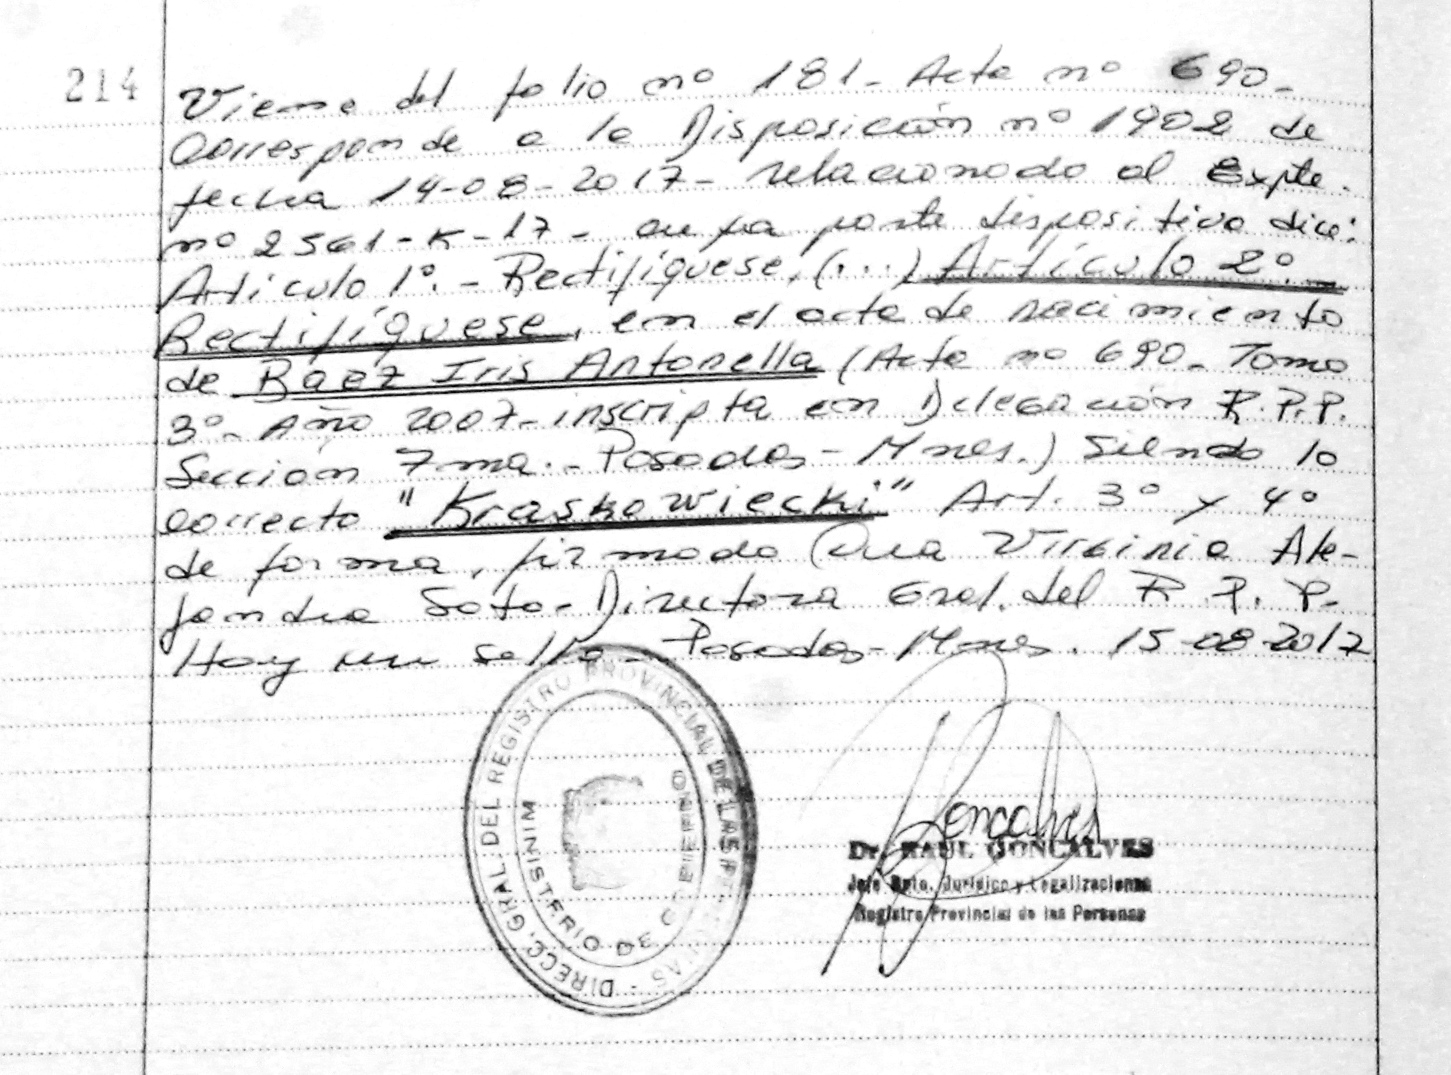 214
Viene del folio nº 181- Acta nº 690-
Corresponde a la Disposición nº 1902 de
fecha 14-08-2017- relacionado al Expte.
nº 2561-K-17- cuya parte dispositiva dice:
Artículo 1º.- Rectifíquese, (...) Artículo 2º-
Rectifíquese, en el acta de nacimiento
de Baez Iris Antonella (Acta nº 690- Tomo
3º- Año 2007- inscripta en Delegación R.P.P.
Sección 7ma.- Posadas- Mnes.) Siendo lo
correcto "Kraskowiecki" Art. 3º y 4º
de forma, firmado Virginia Ale-
jandra Soto- Directora Gral. del R.P.P.
Hay un sello- Posadas- Mnes. 15-08-2017
DIRECC. GRAL. DEL REGISTRO PROVINCIAL DE LAS PERSONAS -
MINISTERIO DE GOBIERNO
Goncalves
Dr. RAUL GONCALVES
Jefe Dpto. Jurídico y Legalizaciones
Registro Provincial de las Personas